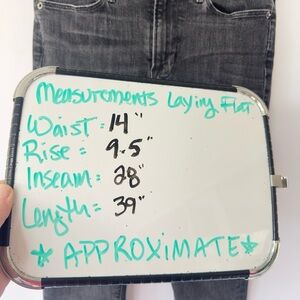 Measurements Laying Flat
Waist = 14"
Rise = 9.5"
Inseam = 28"
Length = 39"
* APPROXiMATE *